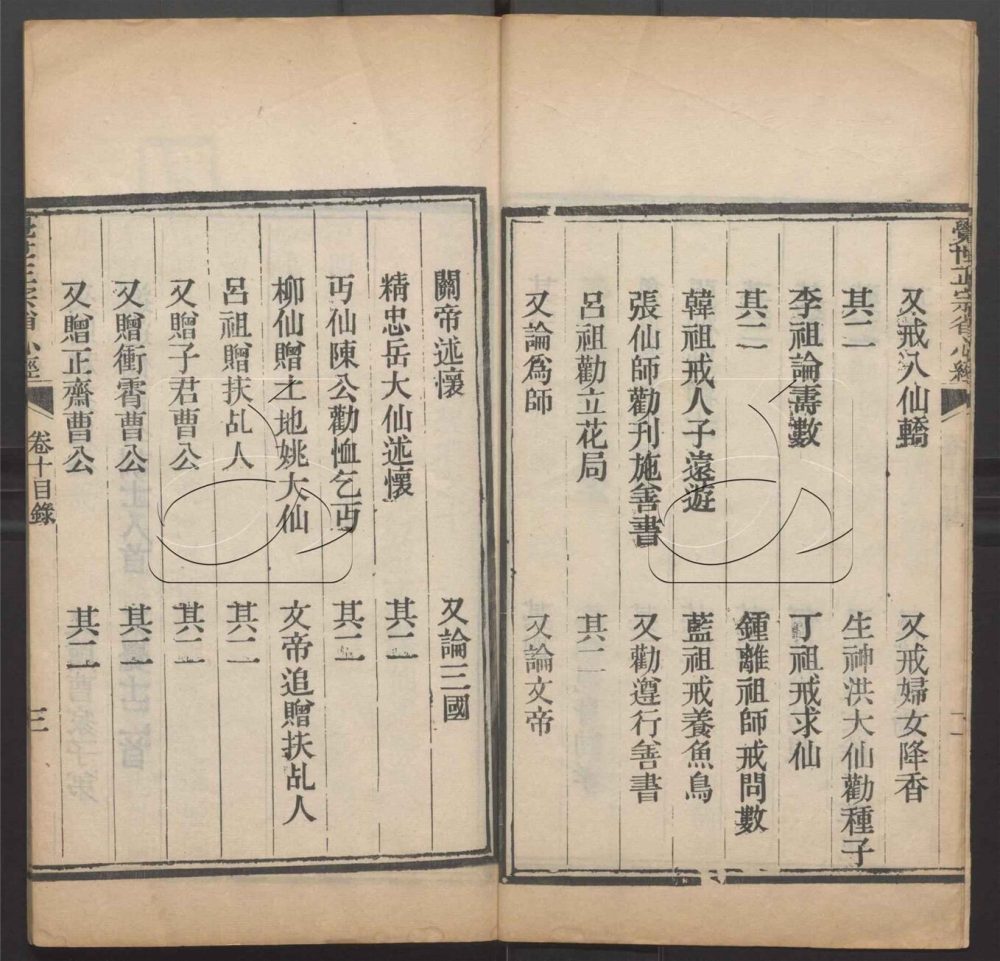 覺世正宗省心經
二
又戒入仙轎 又戒婦女降香
其二 生神洪大仙勸種子
李祖論壽數 丁祖戒求仙
其二 鍾離祖師戒問數
韓祖戒人子遠遊 藍祖戒養魚鳥
張仙師勸刊施善書 又勸遵行善書
呂祖勸立花局 其二
又論為師 又論文帝
關帝述懷 又論三國
精忠岳大仙述懷 其二
丐仙陳公勸恤乞丐 其二
柳仙贈土地姚大仙 文帝追贈扶乩人
呂祖贈扶乩人 其二
又贈子君曹公 其二
又贈衝霄曹公 其二
又贈正齋曹公 其二
覺世正宗省心經 卷十目錄 三